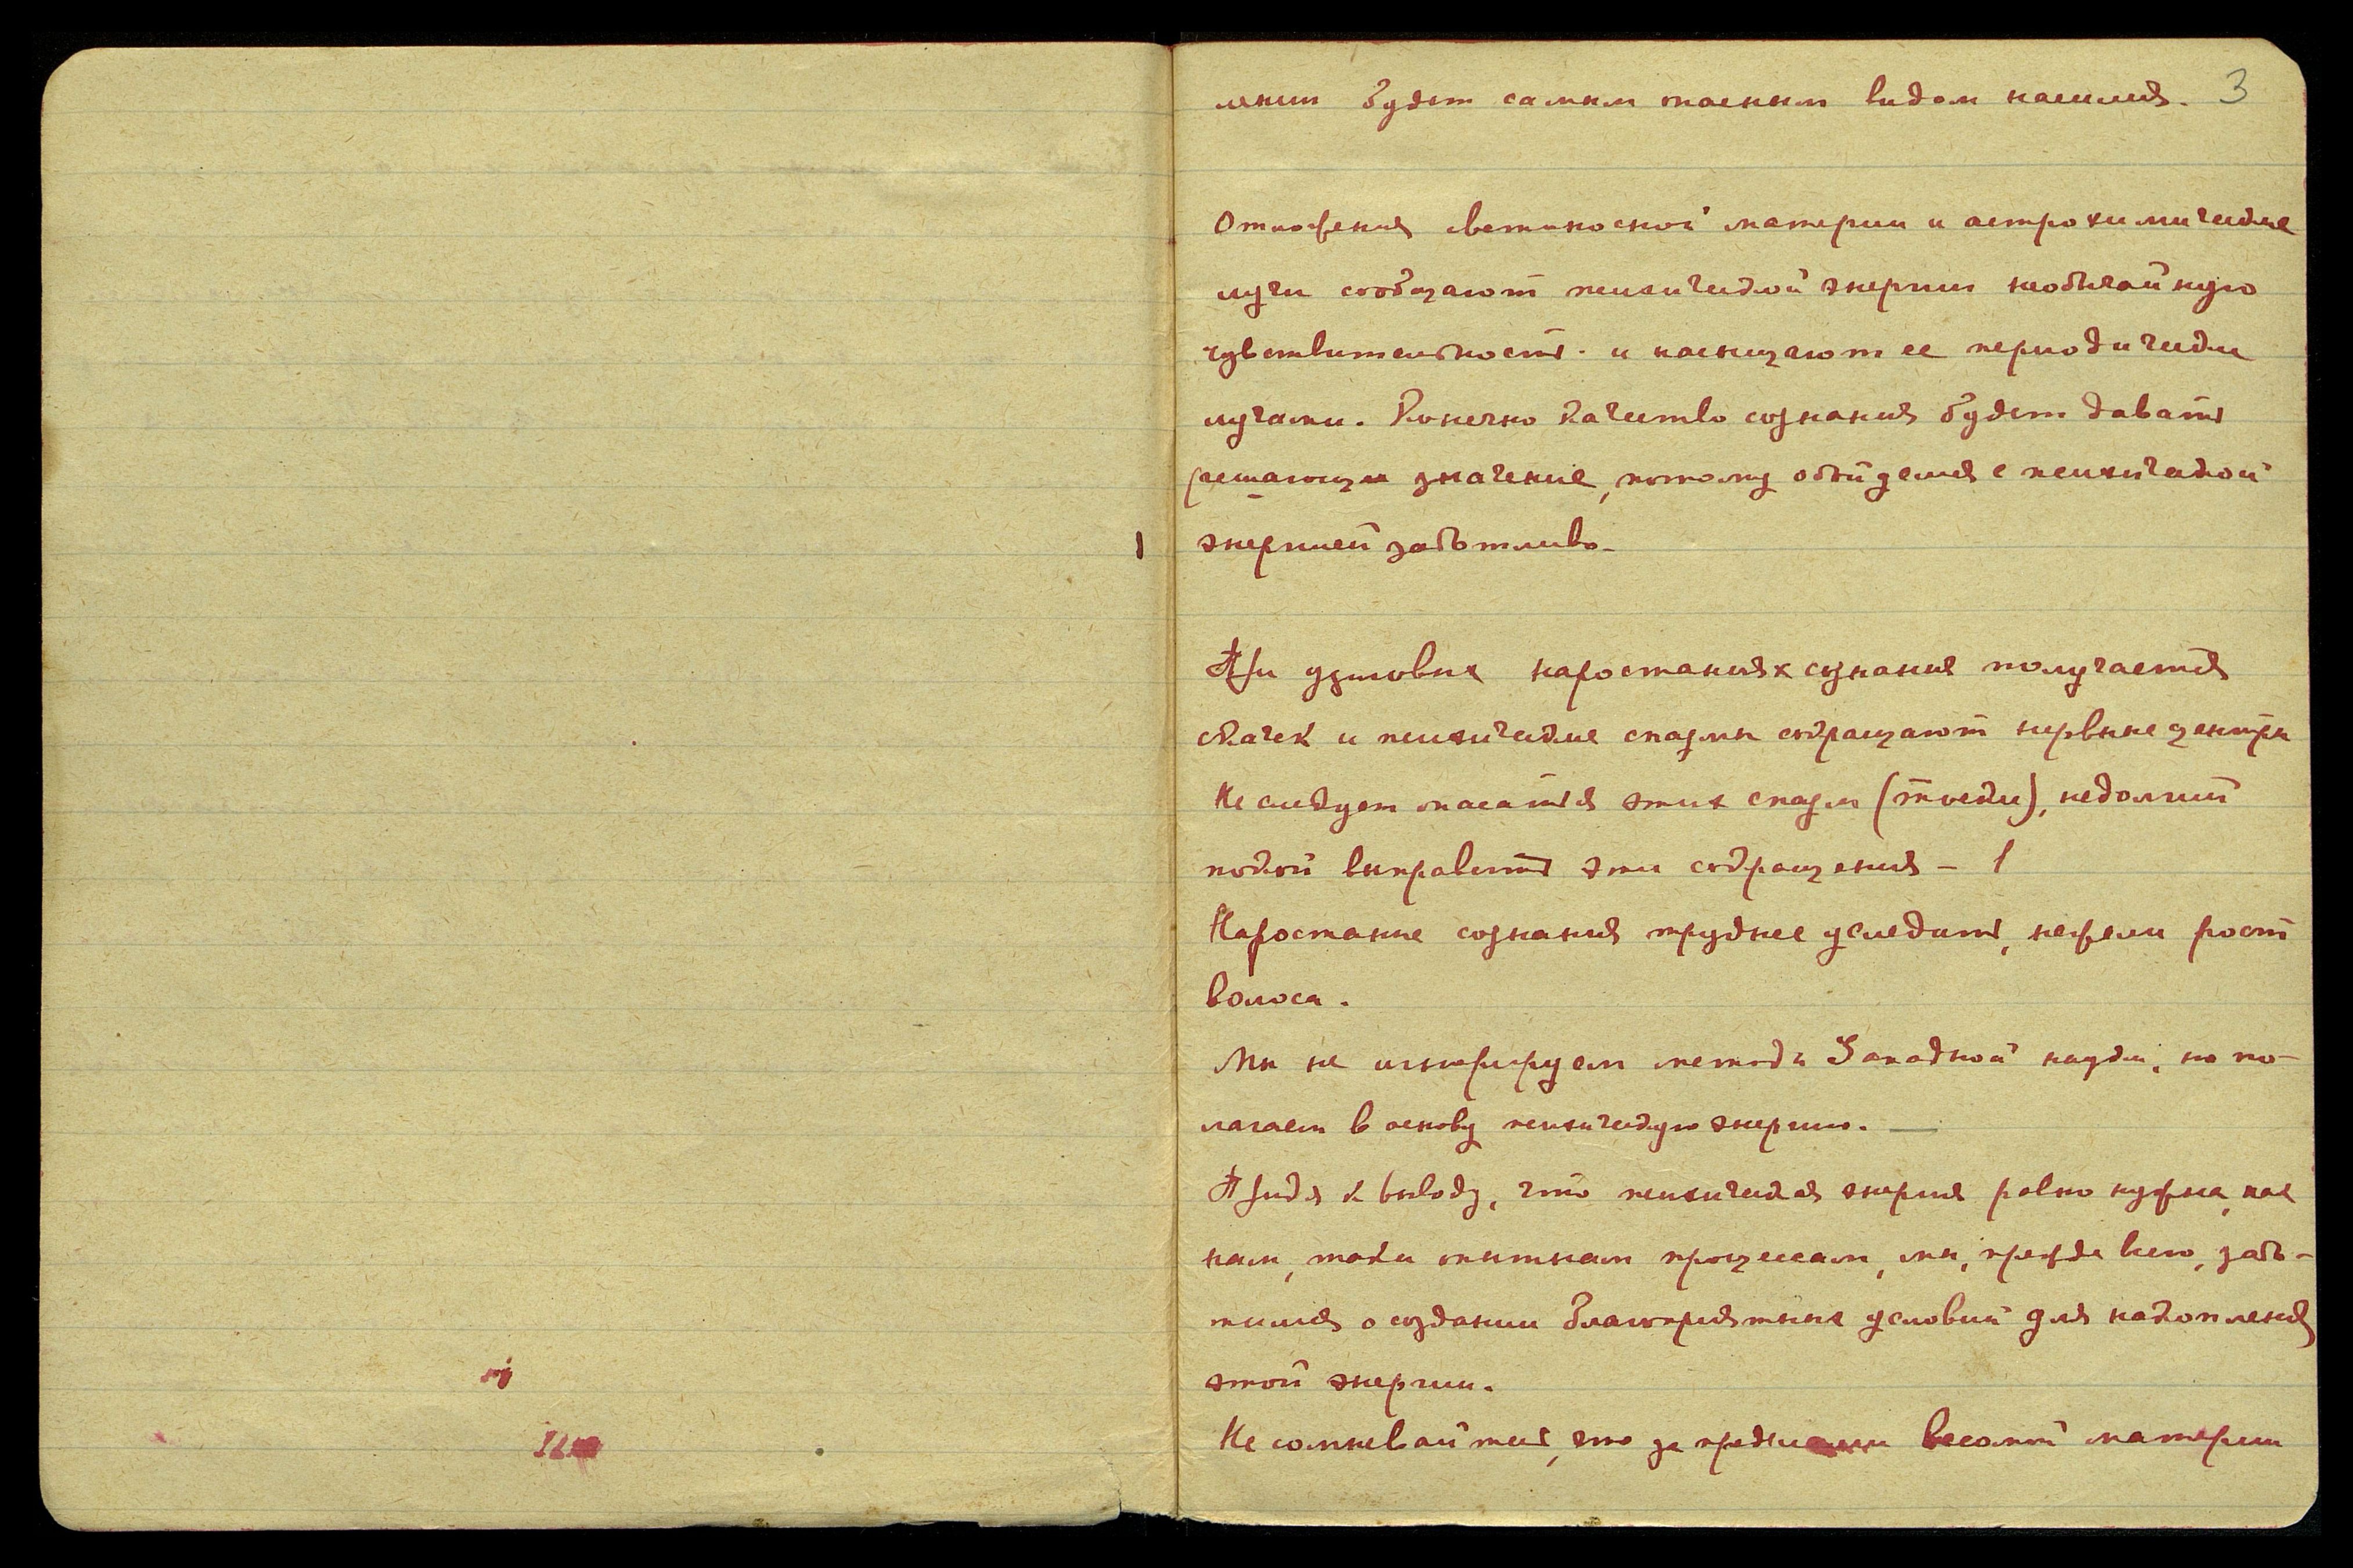 3
лении будет самым опасным видом насилия.
Отложения светоносной материи и астрохимические
лучи сообщают психической энергии необычайную
чувствительность и насыщают ее периодически
лучами. Конечно качество сознания будет давать
решающее значение, потому обойдемся с психической
энергией заботливо.
При узловых наростаниях сознания получается
скачек и психические спазмы сокращают нервные центры
Не следует опасаться этих спазм (тоски), недолгий
покой выправить эти сокращения –
Наростание сознания труднее уследить, нежели рост
волоса.
Мы не игнорируем методы Западной науки, но по-
лагаем в основу психическую энергию. —
Придя к выводу, что психическая энергия равно нужна, как
нам, так и опытным процессам, мы, прежде всего, забо-
тимся о создании благоприятных условий для накопления
этой энергии.
Не сомневайтесь, что за пределами весомой материи